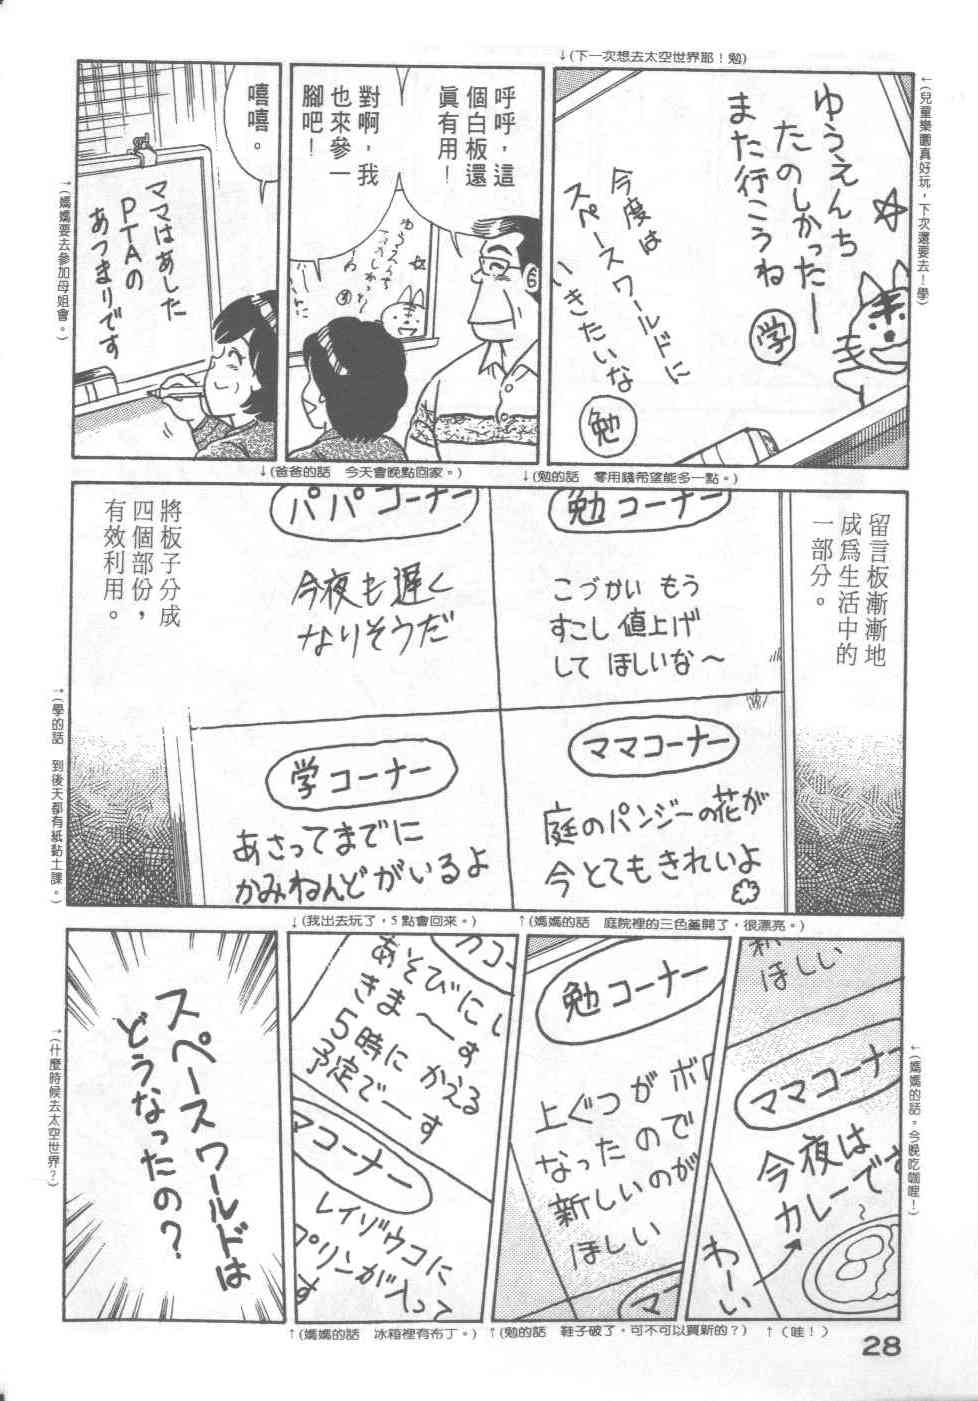 ↓(下一次想去太空世界耶！勉)
←(兒童樂園真好玩，下次還要去！學)
ゆうえんち
たのしかったー
また行こうね
学
今度は
スペースワールドに
いきたいな
勉
呼呼，這
個白板還
眞有用！
對啊，我
也來參一
腳吧！
ゆうえんち
学
嘻嘻。
ママはあした
PTAの
あつまりです
→(媽媽要去參加母姐會。)
↓(勉的話　零用錢希望能多一點。)
↓(爸爸的話　今天會晚點回家。)
留言板漸漸地
成爲生活中的
一部分。
勉コーナー
こづかい もう
すこし 値上げ
して ほしいな～
パパコーナー
今夜も遅く
なりそうだ
ママコーナー
庭のパンジーの花が
今とてもきれいよ
学コーナー
あさってまでに
かみねんどがいるよ
將板子分成
四個部份，
有效利用。
→(學的話　到後天都有紙黏土課。)
↑(媽媽的話　庭院裡的三色菫開了，很漂亮。)
↓(我出去玩了，5點會回來。)
ほしい
ママコーナー
今夜は
カレーで
わーい
←(媽媽的話，今晚吃咖哩！)
勉コーナー
上ぐつがボ
なったので
新しいのが
ほしい
マ
あそびに
きま～す
5時に かえる
予定でーす
マコーナー
レイゾウコに
プリンが入って
す
スペースワールドは
どうなったの？
→(什麼時候去太空世界？)
↑(媽媽的話　冰箱裡有布丁。)
↑(勉的話　鞋子破了，可不可以買新的？)
↑(哇！)
28